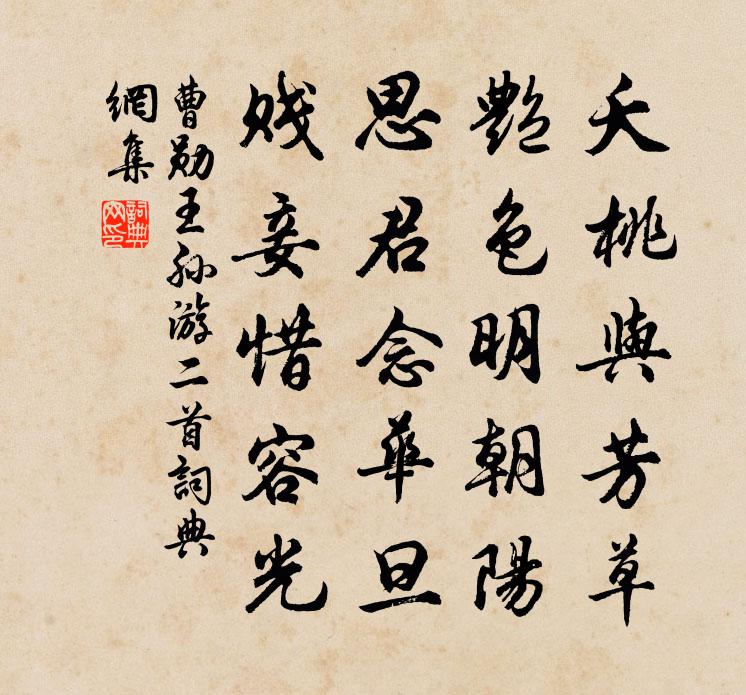 夭桃與芳草
豔色明朝陽
思君念華旦
賤妾惜容光
曹勛王孫游二首詞典
網集
詞典
网印